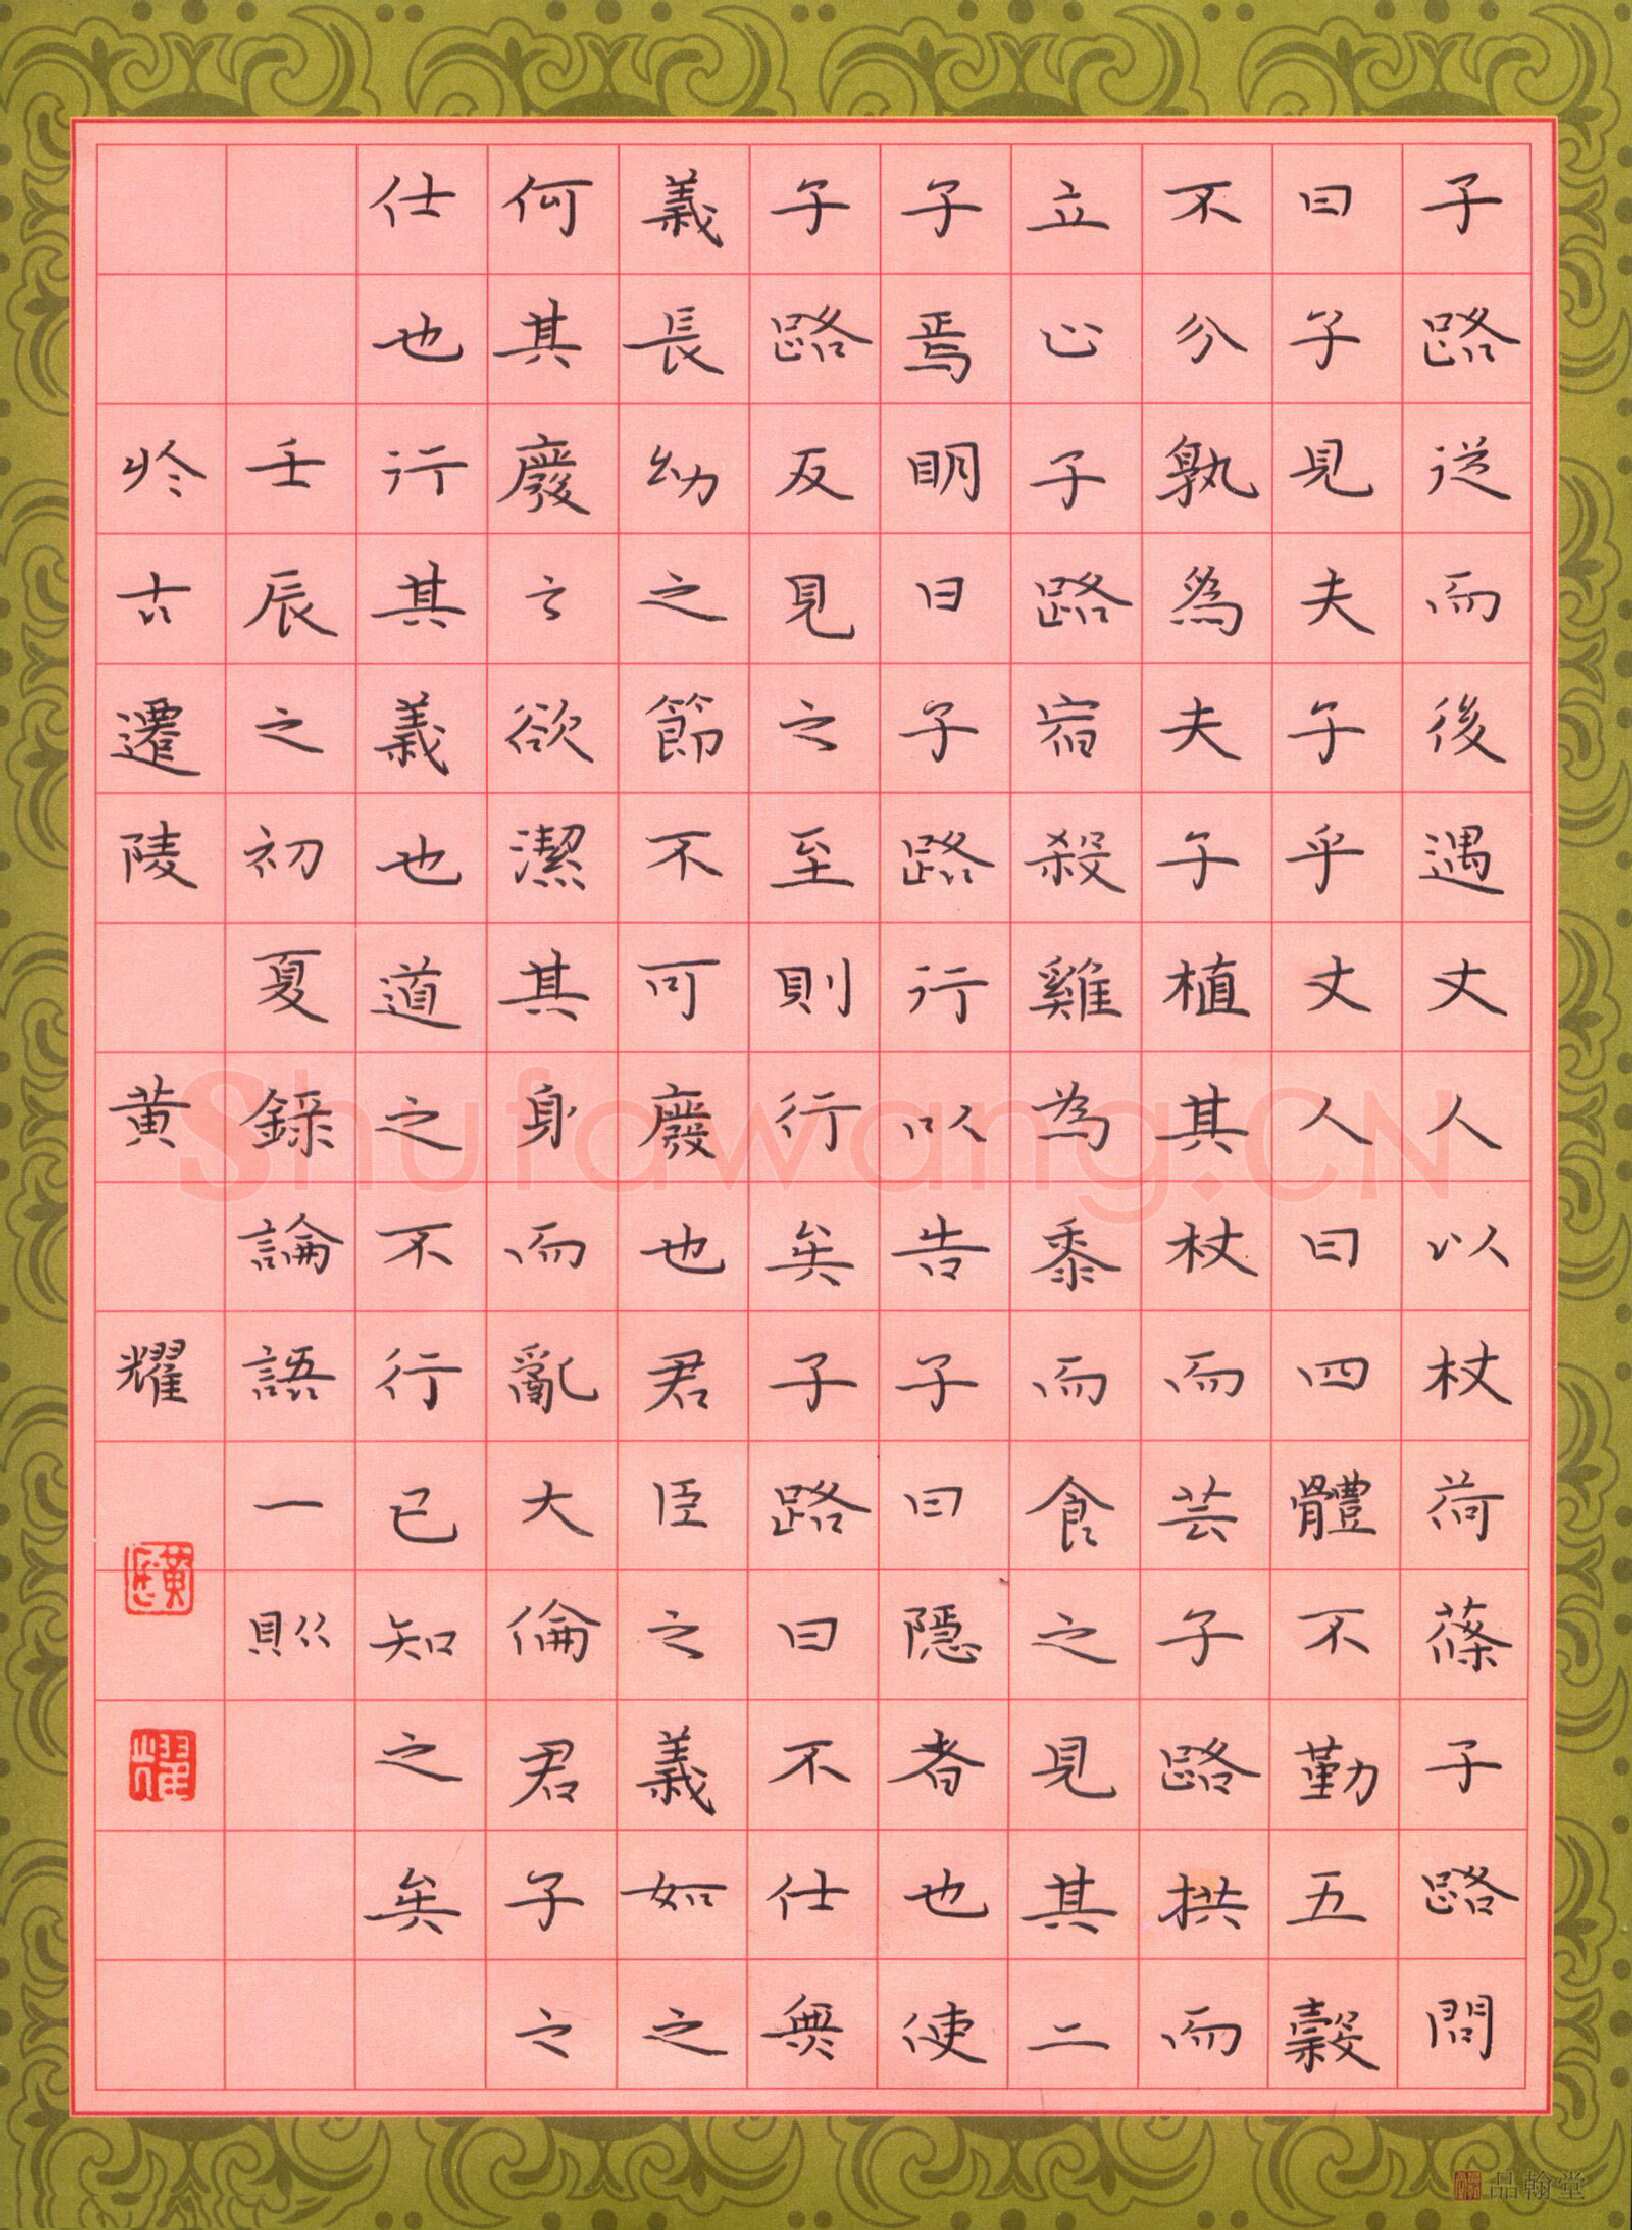 子路從而後遇丈人以杖荷蓧子路問
曰子見夫子乎丈人曰四體不勤五穀
不分孰爲夫子植其杖而芸子路拱而
立止子路宿殺雞為黍而食之見其二
子焉明日子路行以告子曰隱者也使
子路反見之至則行矣子路曰不仕無
義長幼之節不可廢也君臣之義如之
何其廢之欲潔其身而亂大倫君子之
仕也行其義也道之不行已知之矣
壬辰之初夏錄論語一則
於古遷陵 黄耀
黃
耀
Shufawang.CN
品翰堂